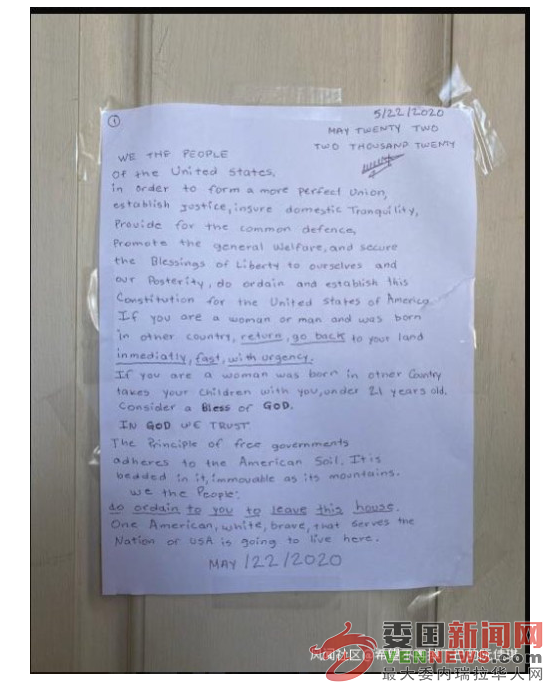 ①
5/22/2020
MAY TWENTY TWO
TWO THOUSAND TWENTY
WE THE PEOPLE
Of the United States,
in order to form a more perfect Union,
establish justice, insure domestic Tranquility,
Provide for the common defence,
Promote the general Welfare, and secure
the Blessings of Liberty to ourselves and
our Posterity, do ordain and establish this
Constitution for the United states of America
If you are a woman or man and was born
in other country, return, go back to your land
inmediatly, fast, with urgency.
If you are a woman was born in other Country
takes your children with you, under 21 years old.
Consider a Bless of GOD.
IN GOD WE TRUST
The Principle of free governments
adheres to the American Soil. It is
bedded in it, immovable as its mountains.
We the People:
do ordain to you to leave this house.
One American, white, brave, that serves the
Nation or USA is going to live here.
MAY /22/2020
风闻社区
委国新闻网
VENNEWS.COM
最大委内瑞拉华人网